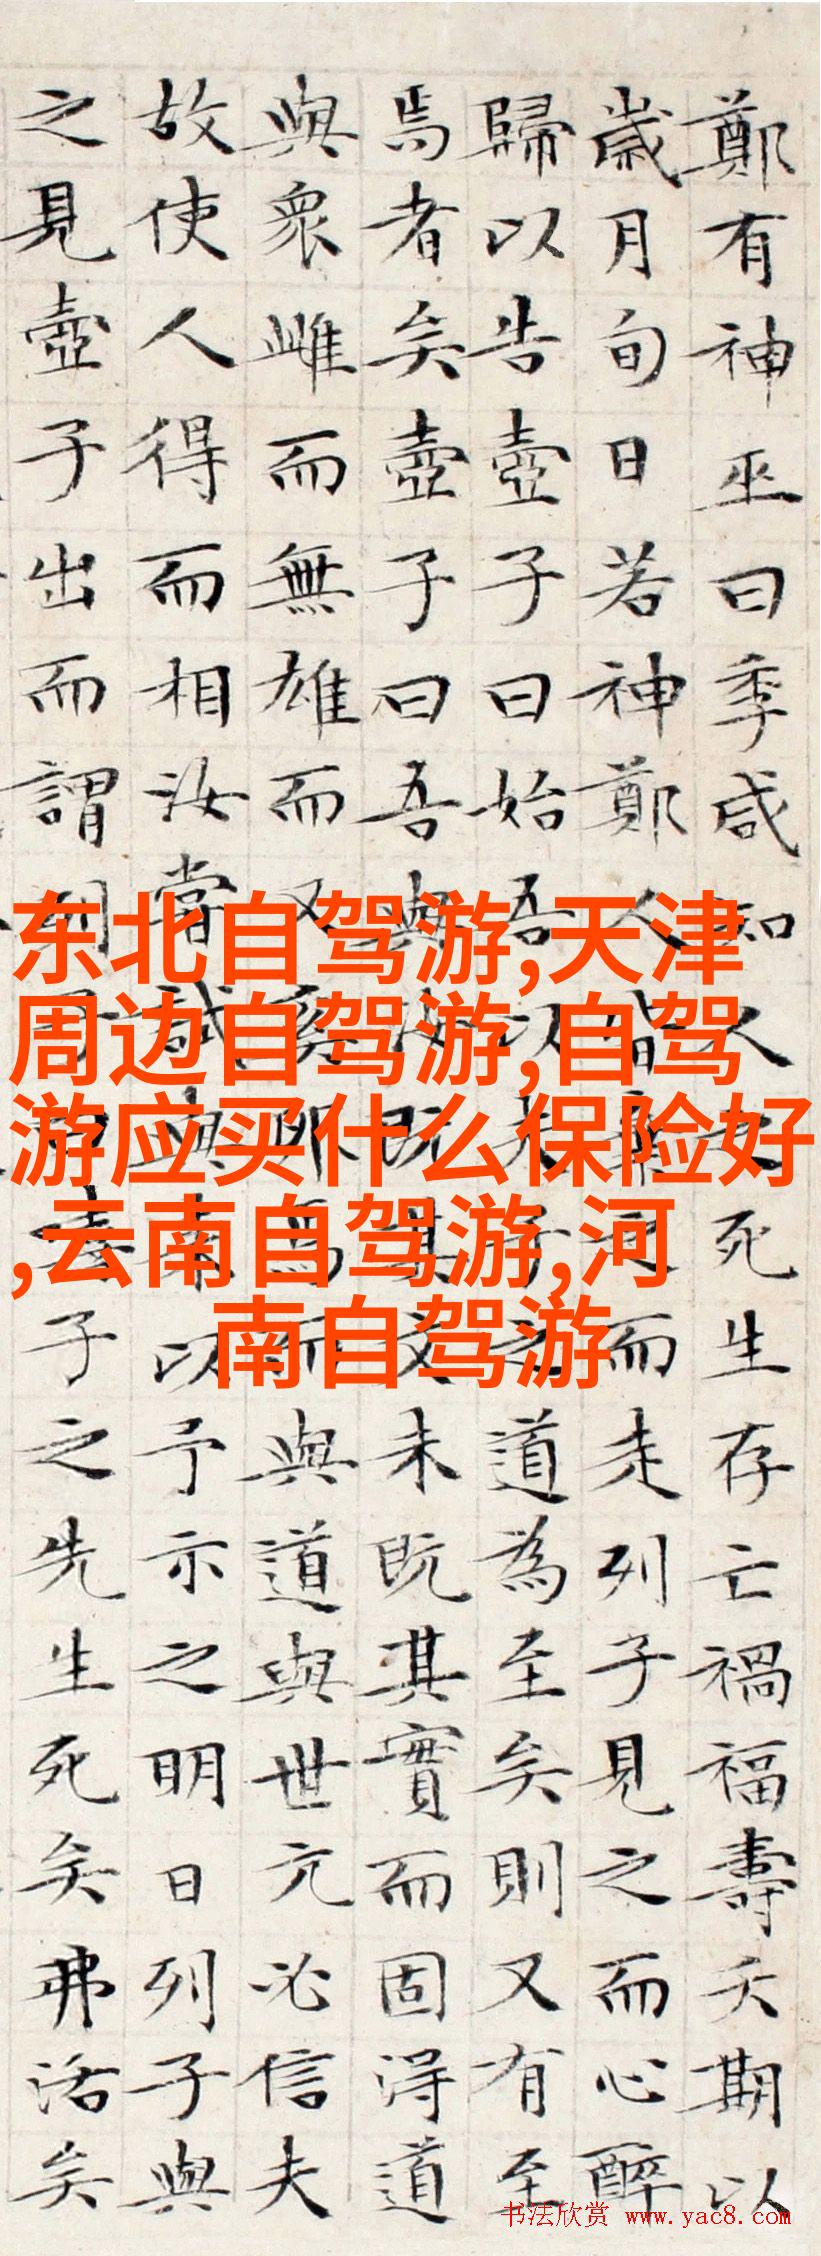 鄭有神巫曰季咸知人之死生存亡禍福壽夭期以
歲月旬日若神鄭人皆棄之而走列子見之而心醉
歸以告壺子曰始吾以夫子之道為至矣則又有至
焉者矣壺子曰吾與汝既其文未既其實而固得道
與衆雌而無雄而又奚卵焉而與道與世亢必信夫
故使人得而相汝嘗試與來以予示之明日列子與
之見壺子出而謂列子曰嘻子之先生死矣弗活矣
东北自驾游,天津
周边自驾游,自驾
游应买什么保险好
,云南自驾游,河
南自驾游
书法欣赏 www.yac8.com